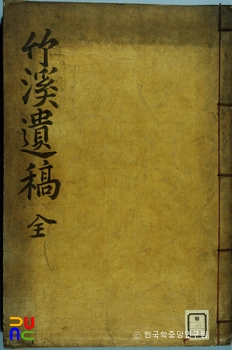 竹溪遺稿 全
© 한국학중앙연구원